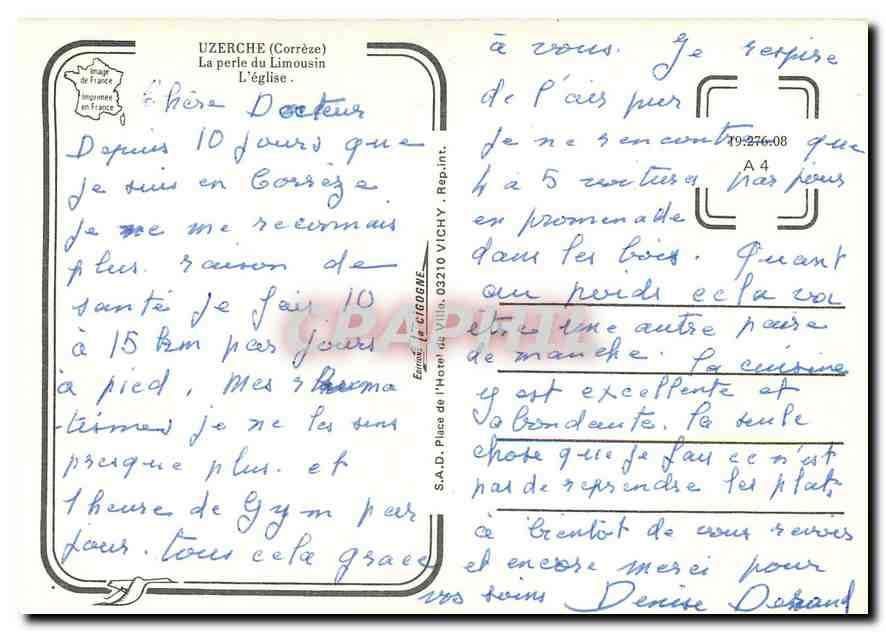 UZERCHE (Corrèze)
La perle du Limousin
L'église.
Image
de France
Imprimée
en France
Chère Docteur
Depuis 10 jours que
je suis en Corrèze
je me reconnais
plus. raison de
santé je fais 10
à 15 km par jours
à pied, mes rhuma
-tismes je ne les sens
presque plus. et
1 heure de Gym par
jour. tous cela grace
S.A.D. Place de l'Hotel de Ville, 03210 VICHY. Rep.int.
Editions la CIGOGNE
CPAPHIL
19.276.08
A 4
à vous. Je respire
de l'air pur
je ne rencontre que
4 à 5 voitures par jours
en promenade
dans les bois. Quant
au poids cela va
être une autre paire
de manche. la cuisine
y est excellente et
abondante. la seule
chose que je fais ce n'est
pas de reprendre les plats
à bientôt de vous revoir
et encore merci pour
vos soins Denise